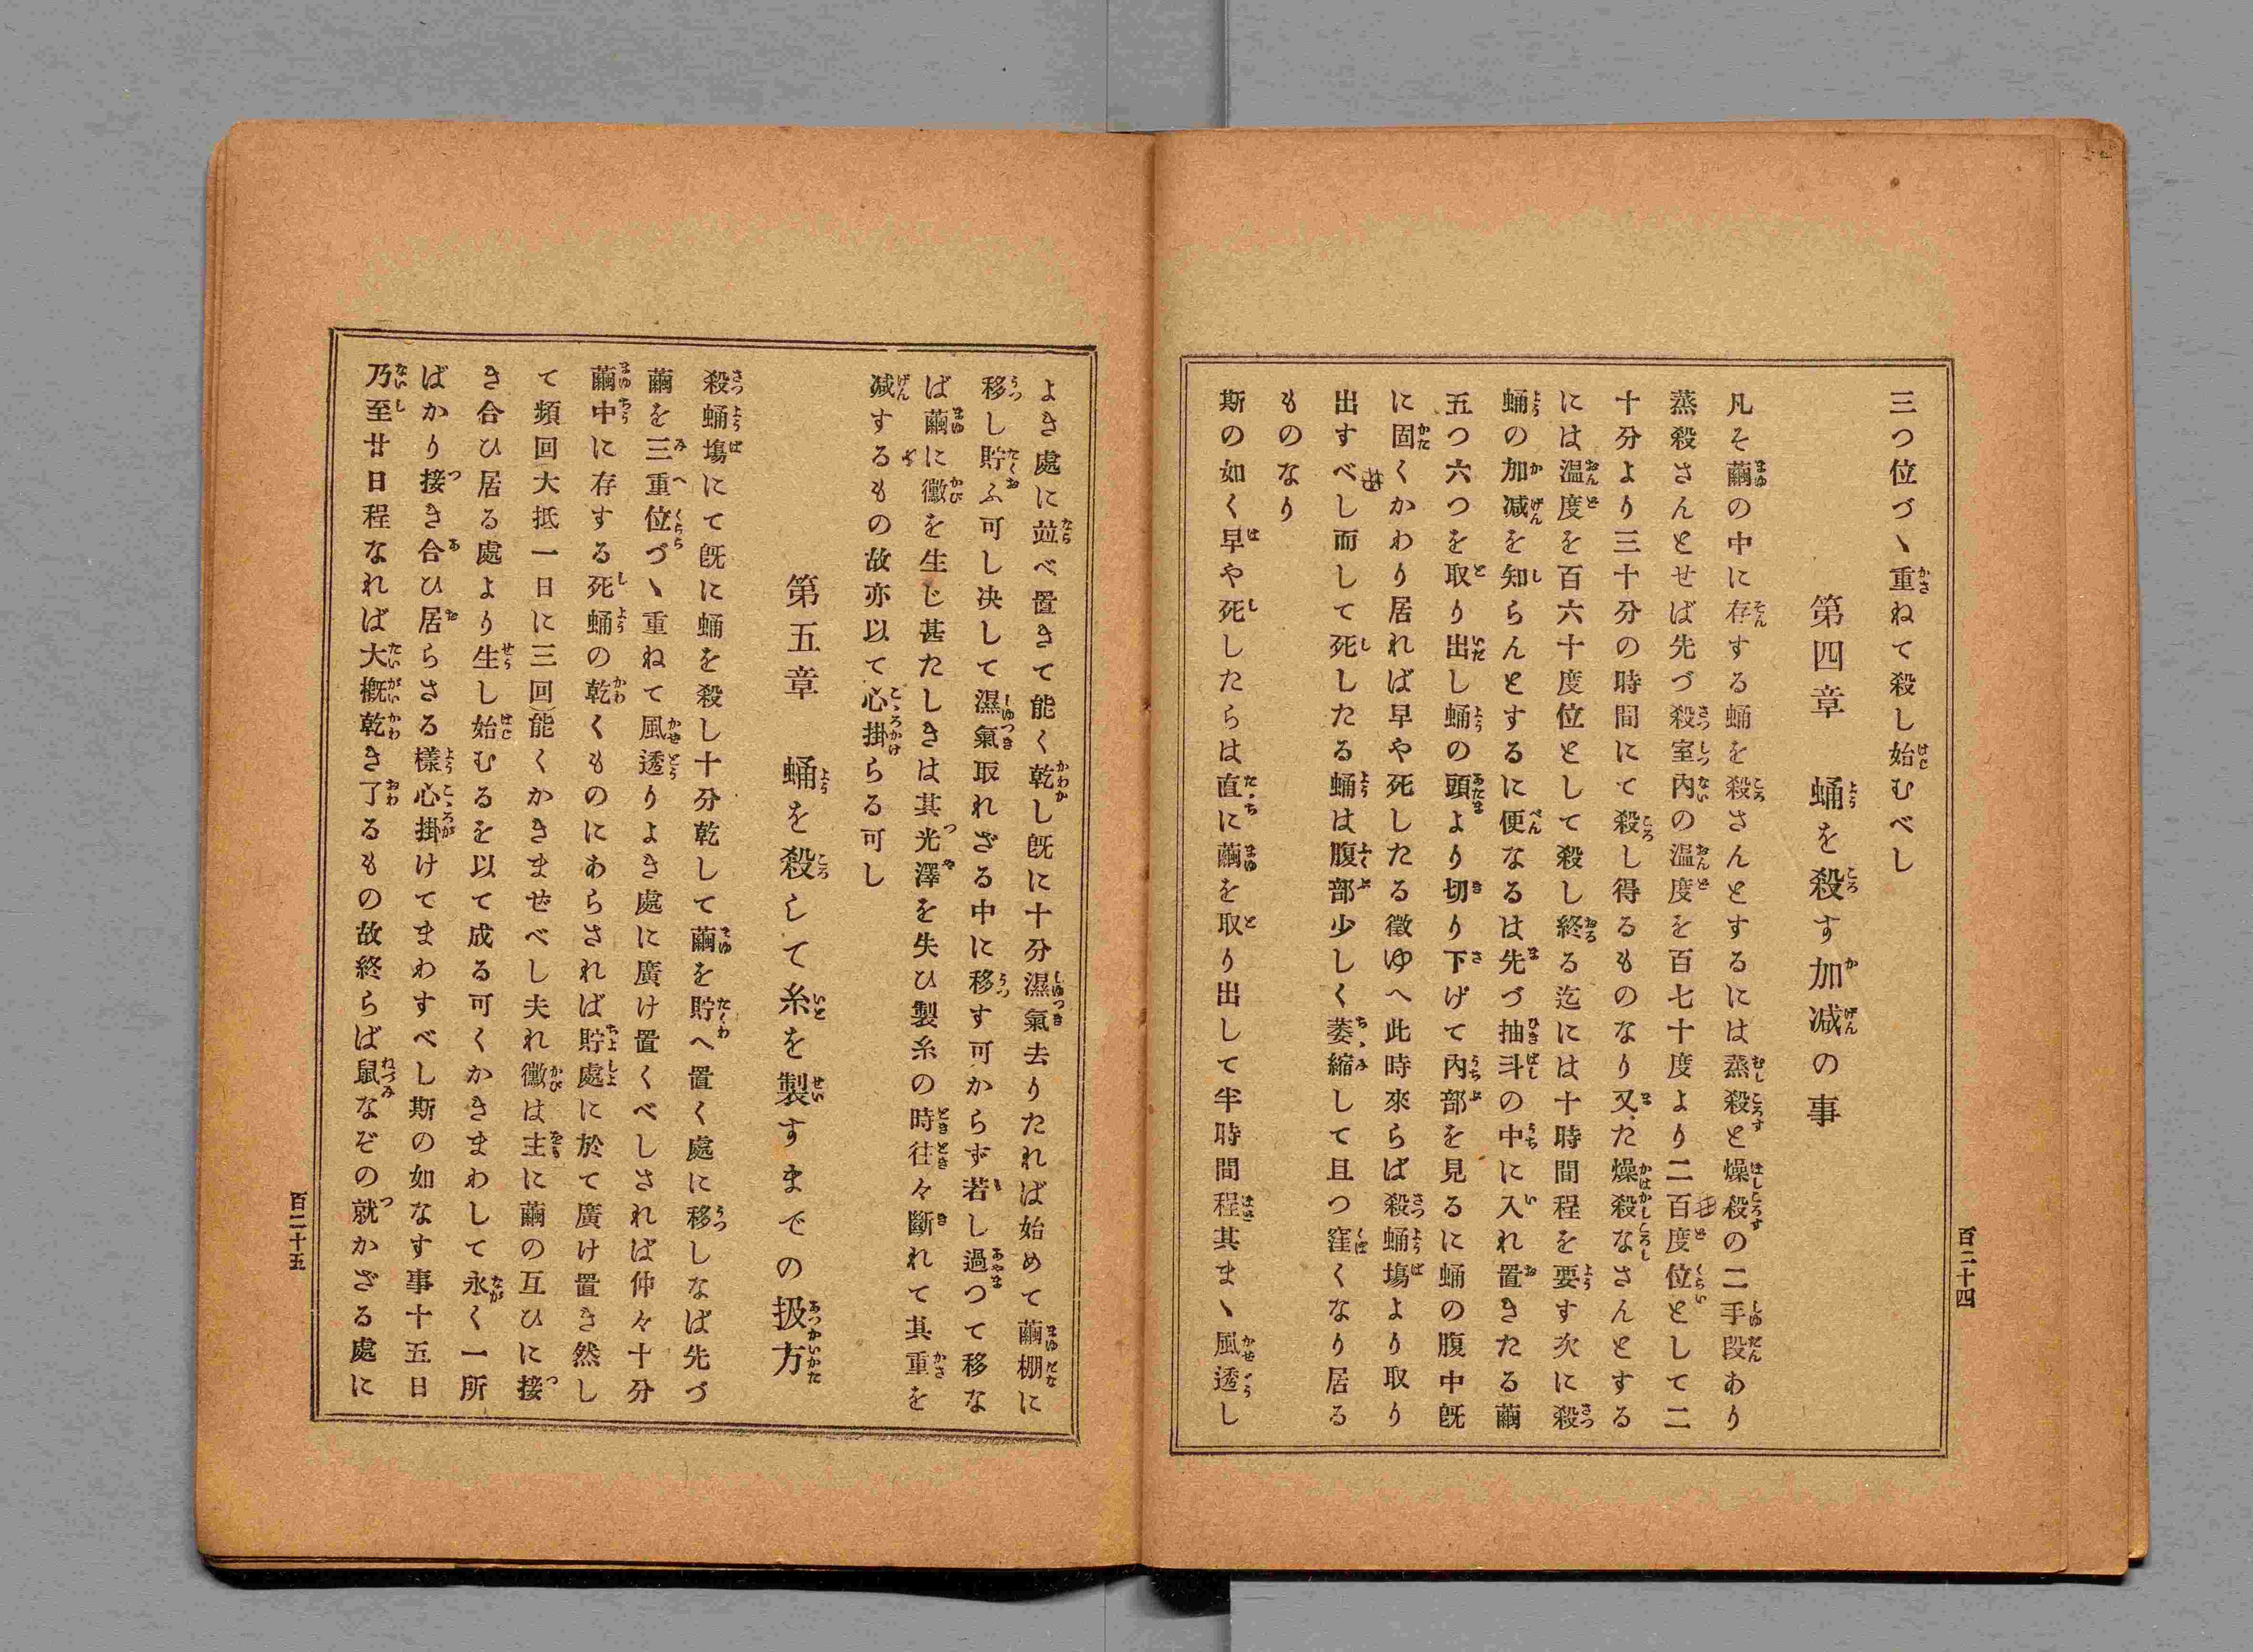 三つ位づヽ重ねて殺し始むべし
第四章 蛹を殺す加减の事
凡そ繭の中に存する蛹を殺さんとするには蒸殺と燥殺の二手段あり
蒸殺さんとせば先づ殺室内の温度を百七十度より二百度位として二
十分より三十分の時間にて殺し得るものなり又た燥殺なさんとする
には温度を百六十度位として殺し終る迄には十時間程を要す次に殺
蛹の加减を知らんとするに便なるは先づ抽斗の中に入れ置きたる繭
五つ六つを取り出し蛹の頭より切り下げて内部を見るに蛹の腹中既
に固くかわり居れば早や死したる徴ゆへ此時來らば殺蛹塲より取り
出すべし而して死したる蛹は腹部少しく萎縮して且つ窪くなり居る
ものなり
斯の如く早や死したらは直に繭を取り出して半時間程其まヽ風透し
百二十四
よき處に竝べ置きて能く乾し既に十分濕氣去りたれば始めて繭棚に
移し貯ふ可し决して濕氣取れざる中に移す可からず若し過つて移な
ば繭に黴を生じ甚たしきは其光澤を失ひ製糸の時往々斷れて其重を
减するもの故亦以て心掛らる可し
第五章 蛹を殺して糸を製すまでの扱方
殺蛹塲にて既に蛹を殺し十分乾して繭を貯へ置く處に移しなば先づ
繭を三重位づヽ重ねて風透りよき處に廣け置くべしされば仲々十分
繭中に存する死蛹の乾くものにあらされば貯處に於て廣け置き然し
て頻回大抵一日に三回能くかきませべし夫れ黴は主に繭の互ひに接
き合ひ居る處より生し始むるを以て成る可くかきまわして永く一所
ばかり接き合ひ居らさる樣心掛けてまわすべし斯の如なす事十五日
乃至廿日程なれば大概乾き了るもの故終らば鼠なぞの就かざる處に
百二十五